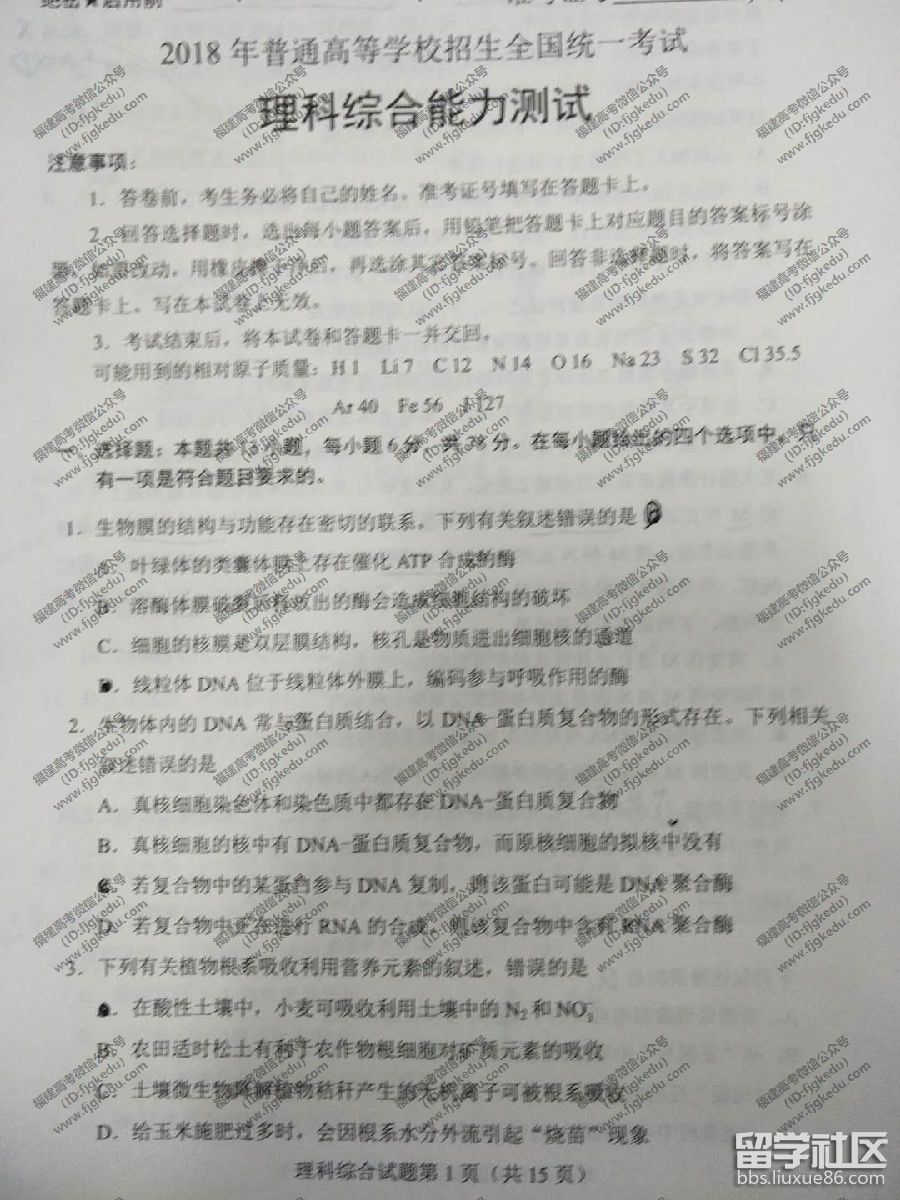 绝密★启用前
2018 年普通高等学校招生全国统一考试
理科综合能力测试
注意事项：
1．答卷前，考生务必将自己的姓名、准考证号填写在答题卡上。
2．回答选择题时，选出每小题答案后，用铅笔把答题卡上对应题目的答案标号涂
黑。如需改动，用橡皮擦干净后，再选涂其它答案标号。回答非选择题时，将答案写在
答题卡上、写在本试卷上无效。
3．考试结束后，将本试卷和答题卡一并交回。
可能用到的相对原子质量：H 1 Li 7 C 12 N 14 O 16 Na 23 S 32 Cl 35.5
Ar 40 Fe 56 I 127
一、选择题：本题共 13 小题，每小题 6 分，共 78 分。在每小题给出的四个选项中，只
有一项是符合题目要求的。
1．生物膜的结构与功能存在密切的联系。下列有关叙述错误的是
A．叶绿体的类囊体膜上存在催化 ATP 合成的酶
B．溶酶体膜破裂后释放出的酶会造成细胞结构的破坏
C．细胞的核膜是双层膜结构，核孔是物质进出细胞核的通道
D．线粒体 DNA 位于线粒体外膜上，编码参与呼吸作用的酶
2．生物体内的 DNA 常与蛋白质结合，以 DNA-蛋白质复合物的形式存在。下列相关
叙述错误的是
A．真核细胞染色体和染色质中都存在 DNA-蛋白质复合物
B．真核细胞的核中有 DNA-蛋白质复合物，而原核细胞的拟核中没有
C．若复合物中的某蛋白参与 DNA 复制，则该蛋白可能是 DNA 聚合酶
D．若复合物中正在进行 RNA 的合成，则该复合物中含有 RNA 聚合酶
3．下列有关植物根系吸收利用营养元素的叙述，错误的是
A．在酸性土壤中，小麦可吸收利用土壤中的 N₂ 和 NO₃⁻
B．农田适时松土有利于农作物根细胞对矿质元素的吸收
C．土壤微生物降解植物秸秆产生的无机离子可被根系吸收
D．给玉米施肥过多时，会因根系水分外流引起“烧苗”现象
理科综合试题第 1 页（共 15 页）
福建高考微信公众号
(ID:fjgkedu)
www.fjgkedu.com
留学社区
bbs.liuxue86.com